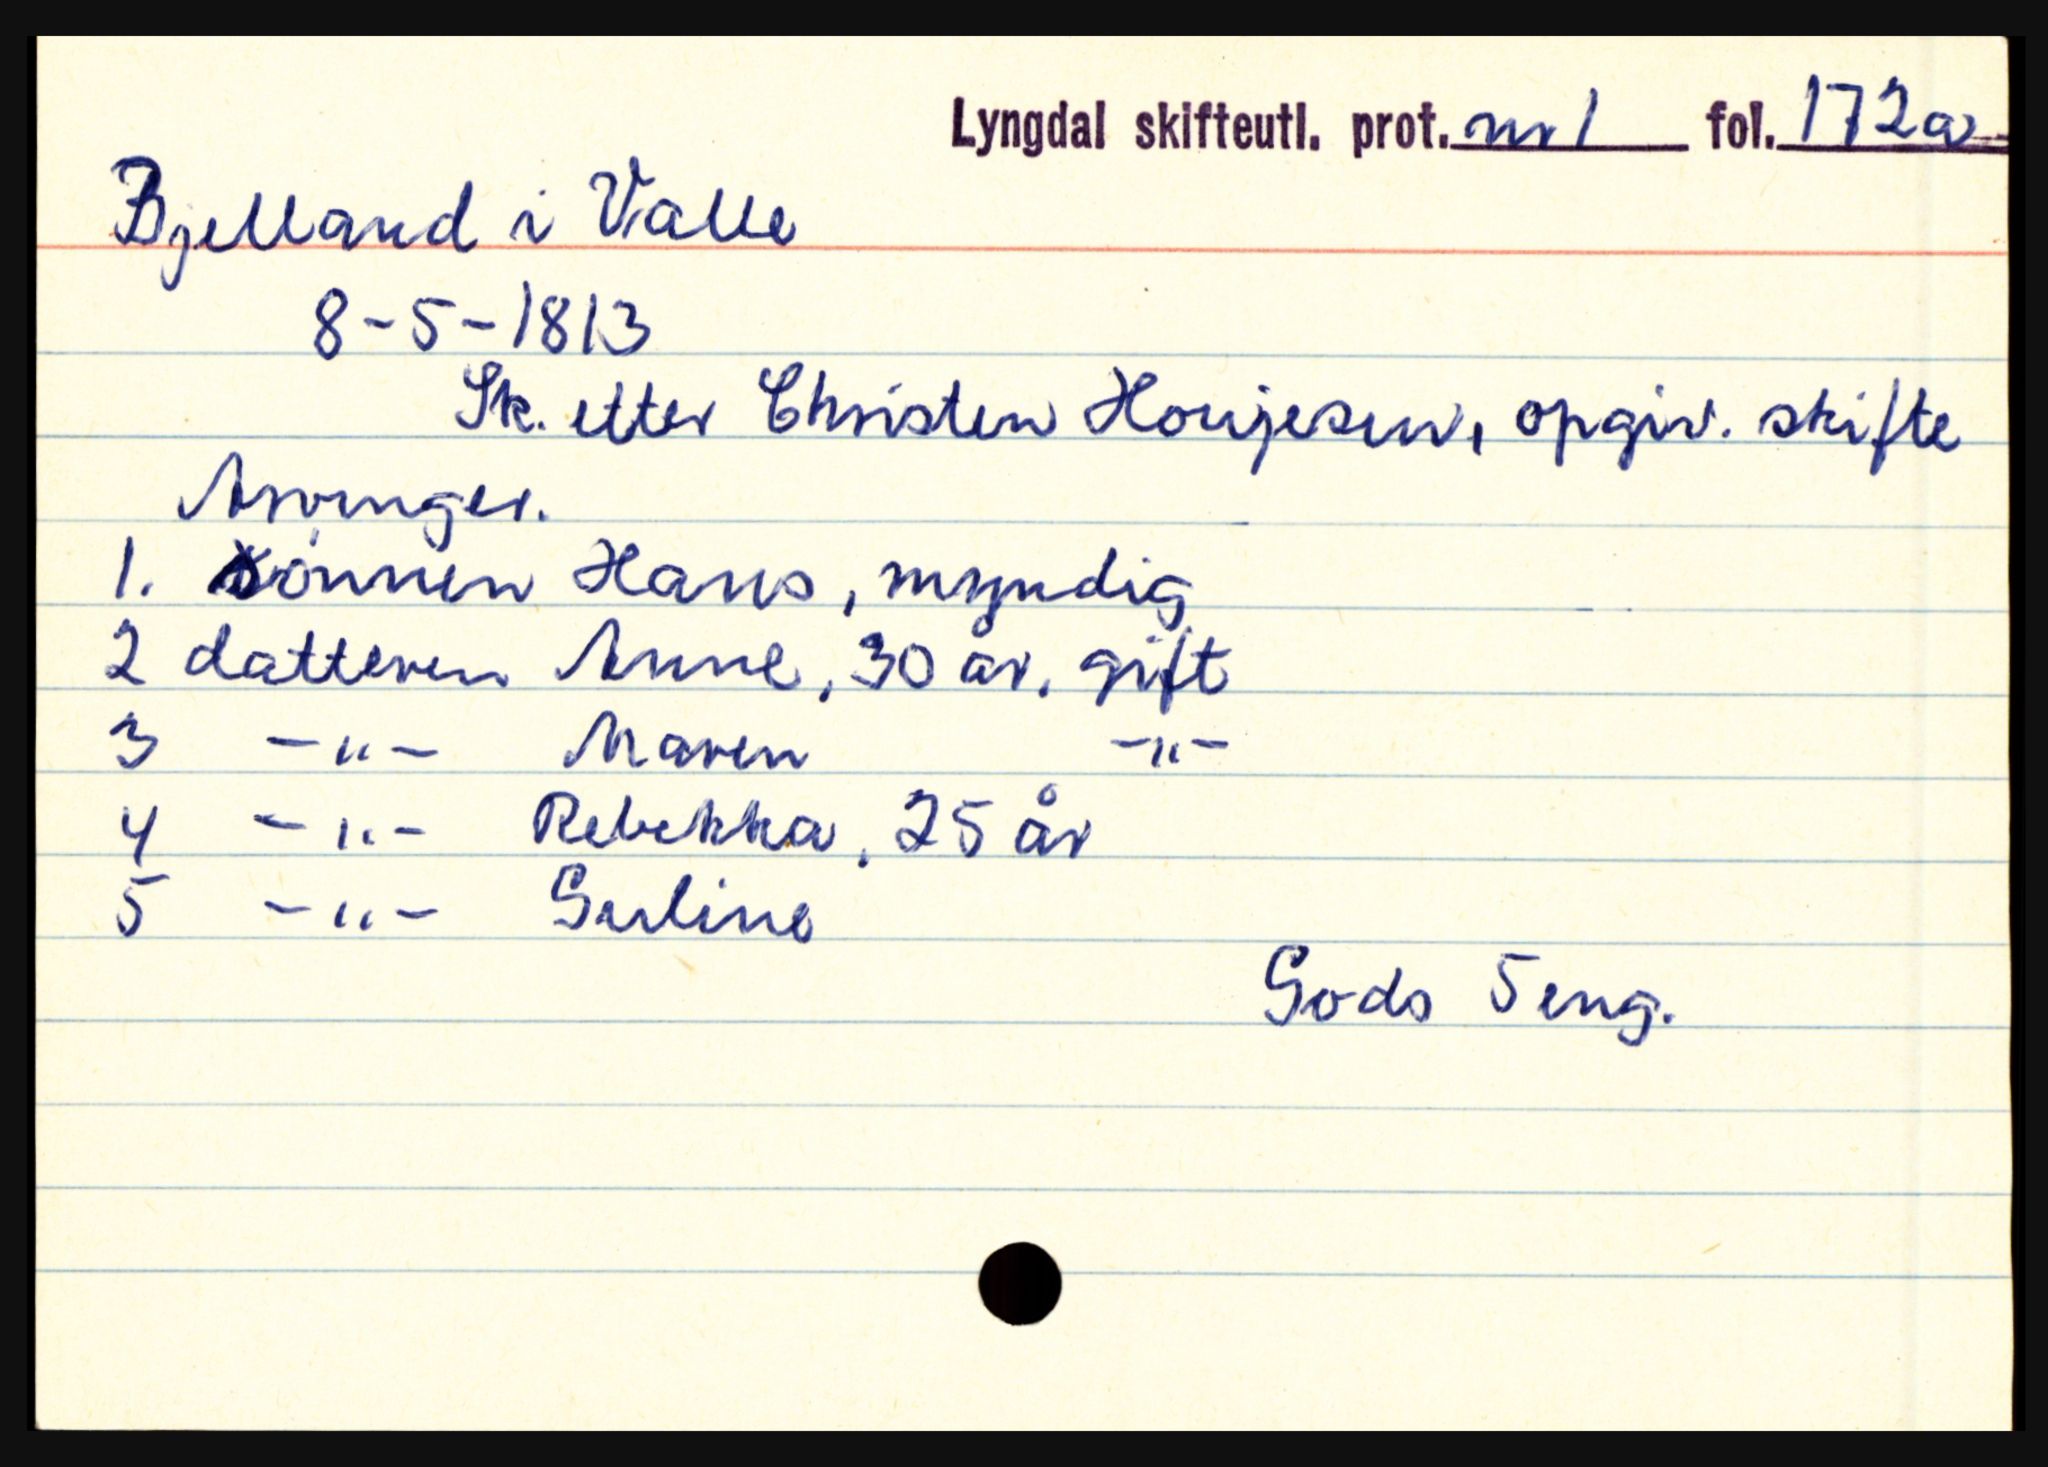 Lyngdal skifteutl. prot. nr 1 fol. 172a
Bjelland i Valle
8-5-1813
Sk. etter Christen Honjesen, opgiv. skifte
Arvinger.
1. sønnen Hans, myndig
2 datteren Anne, 30 år, gift
3 -"- Maren -"-
4 -"- Rebekka, 25 år
5 -"- Guline
Gods 5 eng.